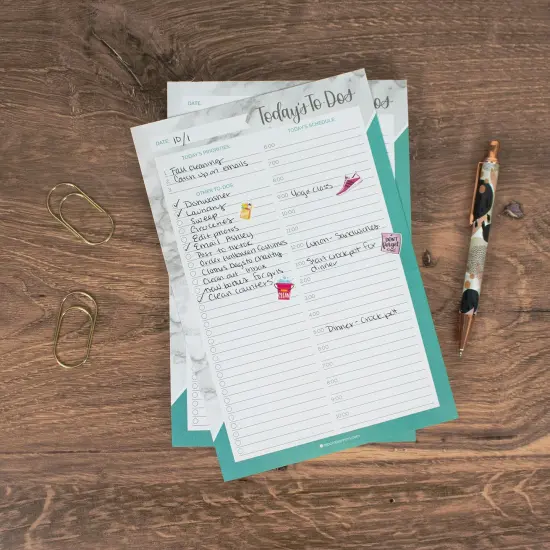 DATE:
Today's To Dos
DATE: 10/1
TODAY'S PRIORITIES
1. Fall cleaning
2. Catch up on emails
3.
OTHER TO-DOS
Dishwasher
Laundry
Sweep
Groceries
Edit photos
Email Ashley
Post to tiktok
Order halloween costumes
Clothes Days to charity
Clean out inbox
new books for girls
Clean counters
CLEAN
TODAY'S SCHEDULE
6:00
7:00
8:00
Yoga class
10:00
11:00
12:00 Lunch - Sandwiches
Start crockpot for
dinner
DON'T FORGET
Dinner - Crock pot
6:00
7:00
8:00
9:00
10:00